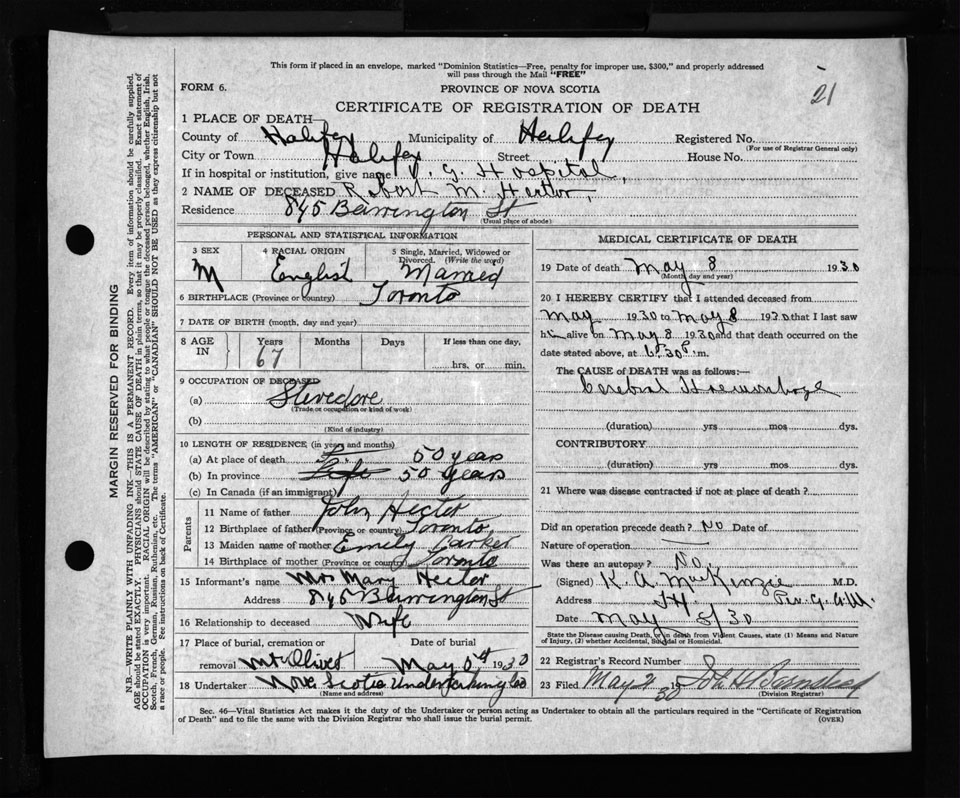 This form if placed in an envelope, marked "Dominion Statistics—Free, penalty for improper use, $300," and properly addressed
will pass through the Mail "FREE"
21
FORM 6.
PROVINCE OF NOVA SCOTIA
CERTIFICATE OF REGISTRATION OF DEATH
1 PLACE OF DEATH—
County of Halifax Municipality of Halifax Registered No.
(For use of Registrar General only)
City or Town Halifax Street House No.
If in hospital or institution, give name V. G. Hospital,
2 NAME OF DECEASED Robert M. Hector,
Residence 845 Barrington St
(Usual place of abode)
PERSONAL AND STATISTICAL INFORMATION
3 SEX 4 RACIAL ORIGIN 5 Single, Married, Widowed or Divorced. (Write the word)
M English Married
6 BIRTHPLACE (Province or country) Toronto
7 DATE OF BIRTH (month, day and year)
8 AGE IN Years Months Days If less than one day,
67 hrs. or min.
9 OCCUPATION OF DECEASED
(a) Stevedore
(Trade or occupation or kind of work)
(b)
(Kind of industry)
10 LENGTH OF RESIDENCE (in years and months)
(a) At place of death 50 years
(b) In province Life 50 years
(c) In Canada (if an immigrant)
Parents
11 Name of father John Hector
12 Birthplace of father (Province or country) Toronto
13 Maiden name of mother Emily Carker
14 Birthplace of mother (Province or country) Toronto
15 Informant's name Mrs Mary Hector
Address 845 Barrington St
16 Relationship to deceased Wife
17 Place of burial, cremation or Date of burial
removal Mt Olivet May 1930
18 Undertaker Nova Scotia Undertaking Co
(Name and address)
MEDICAL CERTIFICATE OF DEATH
19 Date of death May 8 1930
(Month, day and year)
20 I HEREBY CERTIFY that I attended deceased from
May 1930 to May 8 1930 that I last saw
h alive on May 8 1930 and that death occurred on the
date stated above, at 6.30 P. m.
The CAUSE OF DEATH was as follows:—
Cerebral Haemorrhage
(duration) yrs mos dys.
CONTRIBUTORY
(duration) yrs mos dys.
21 Where was disease contracted if not at place of death?
Did an operation precede death? No Date of
Nature of operation
Was there an autopsy? No.
(Signed) K. A. MacKenzie M.D.
Address
Date May 8/30
State the Disease causing Death, or in death from Violent Causes, state (1) Means and Nature of Injury, (2) whether Accidental, Suicidal or Homicidal.
22 Registrar's Record Number
23 Filed May 21 1930
(Division Registrar)
Sec. 46—Vital Statistics Act makes it the duty of the Undertaker or person acting as Undertaker to obtain all the particulars required in the "Certificate of Registration
of Death" and to file the same with the Division Registrar who shall issue the burial permit.
(OVER)
MARGIN RESERVED FOR BINDING
N.B.—WRITE PLAINLY WITH UNFADING INK—THIS IS A PERMANENT RECORD. Every item of information should be carefully supplied.
AGE should be stated EXACTLY. PHYSICIANS should STATE CAUSE OF DEATH in plain terms, so that it may be properly classified. Exact statement of
OCCUPATION is very important. RACIAL ORIGIN will be described by stating to what people or tongue the deceased person belonged, whether English, Irish,
Scotch, French, German, Russian, Ruthenian, etc. The terms "AMERICAN" or "CANADIAN" SHOULD NOT BE USED as they express citizenship but not
a race or people. Fee instructions on back of Certificate.